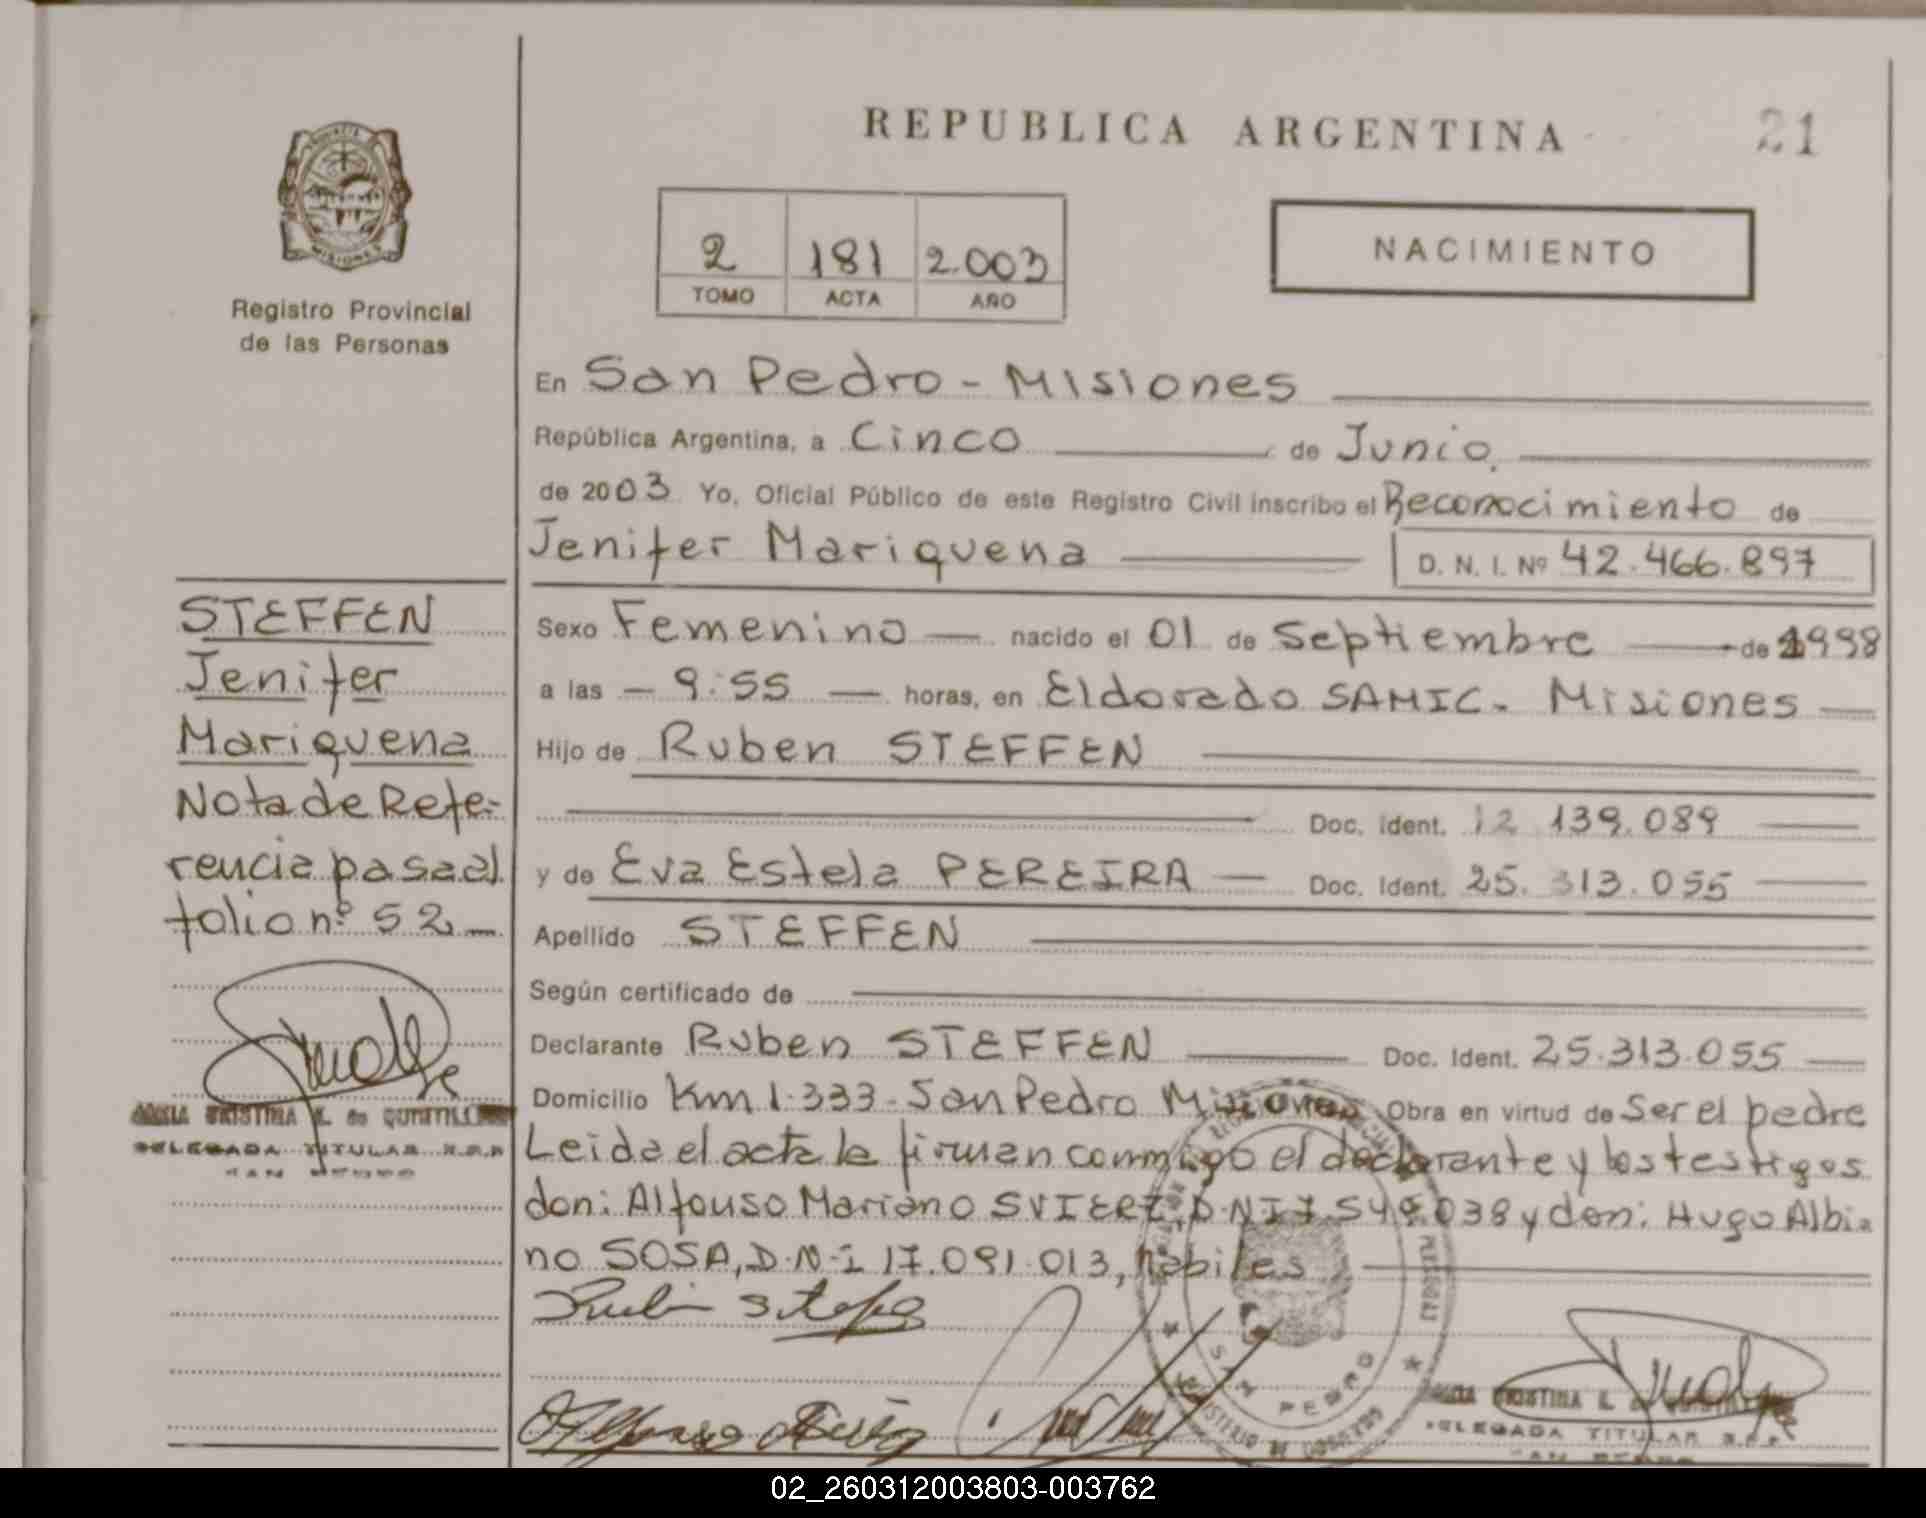 REPUBLICA ARGENTINA
21
Registro Provincial
de las Personas
2 181 2.003
TOMO ACTA AÑO
NACIMIENTO
En San Pedro - Misiones
República Argentina, a Cinco de Junio,
de 2003 Yo, Oficial Público de este Registro Civil inscribo el Reconocimiento de
Jenifer Mariquena D. N. I. Nº 42.466.897
STEFFEN
Jenifer
Mariquena
Nota de Refe-
rencia pasa al
folio nº 52
Sexo Femenino nacido el 01 de Septiembre de 1998
a las 9:55 horas, en Eldorado SAMIC. Misiones
Hijo de Ruben STEFFEN
Doc. Ident. 12 139.089
y de Eva Estela PEREIRA Doc. Ident. 25.313.055
Apellido STEFFEN
Según certificado de
Declarante Ruben STEFFEN Doc. Ident. 25.313.055
Domicilio Km 1.333 - San Pedro Misiones Obra en virtud de Ser el padre
Leida el acta la firman conmigo el declarante y los testigos
don: Alfonso Mariano SVIERZ, D.N.I 7.549.038 y don: Hugo Albia
no SOSA, D.N.I 17.091.013, habiles
CRISTINA
DELEGADA TITULAR
SAN PEDRO
SAN PEDRO
CRISTINA
DELEGADA TITULAR
SAN PEDRO
02_260312003803-003762